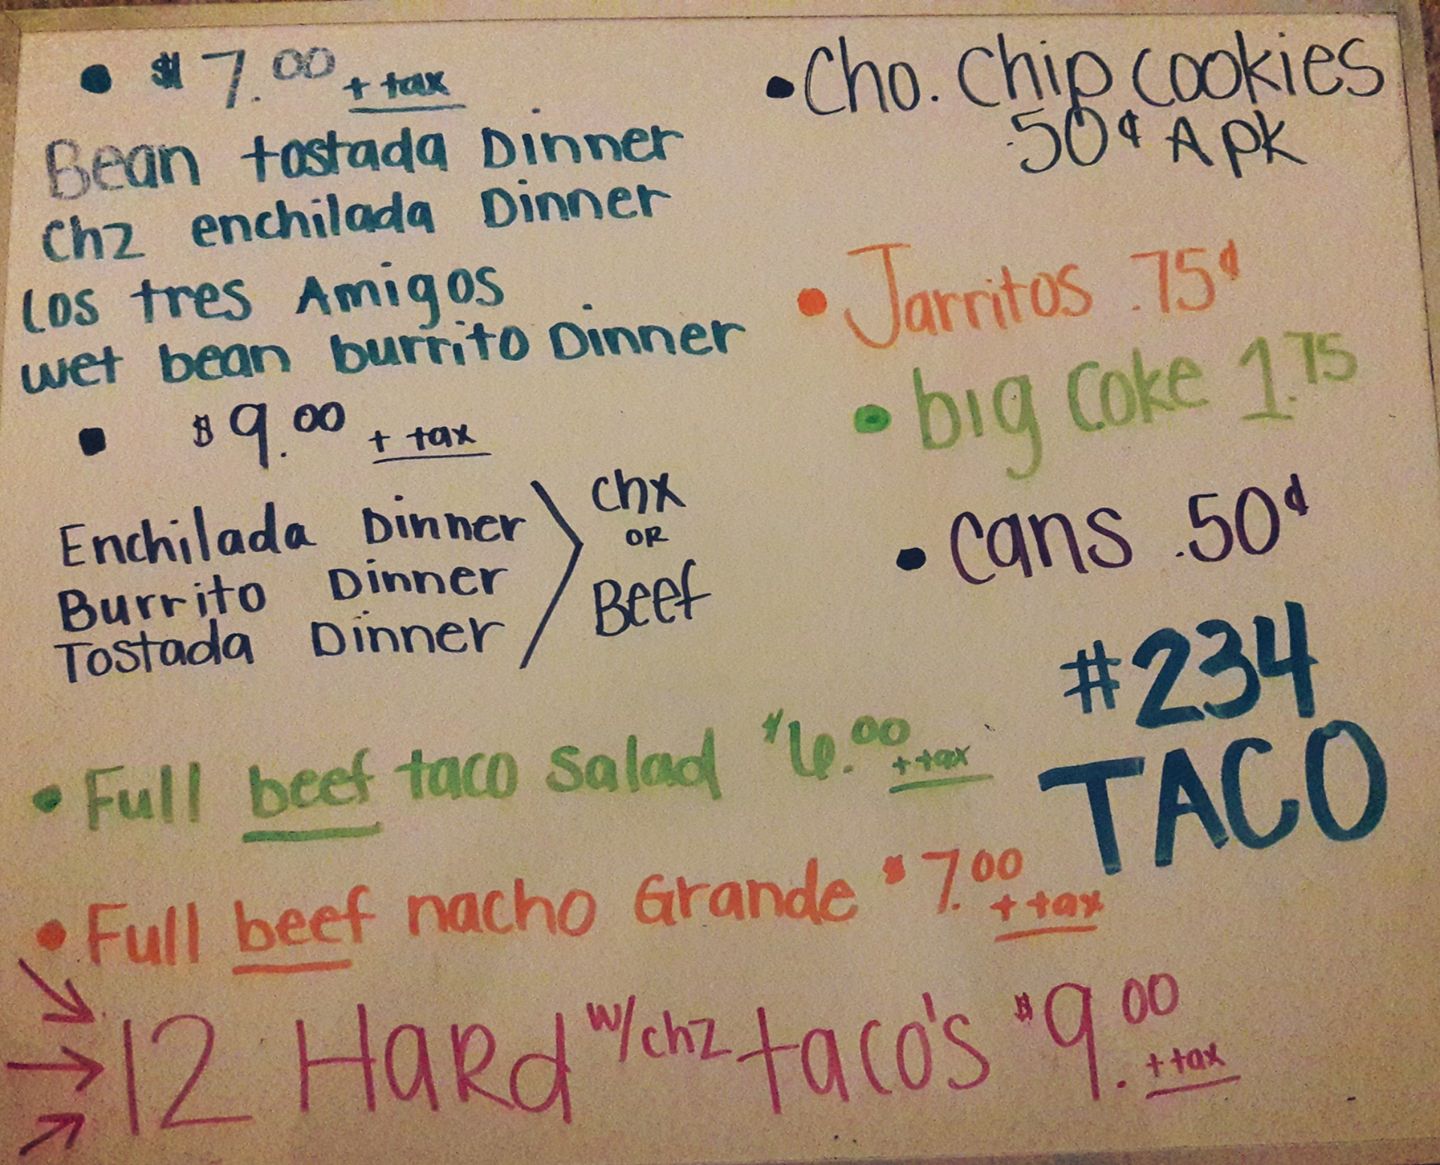 • $7.00 + tax
Bean tostada Dinner
Chz enchilada Dinner
Los tres Amigos
wet bean burrito Dinner
• $9.00 + tax
Enchilada Dinner
Burrito Dinner
Tostada Dinner
Chx
OR
Beef
• Full beef taco Salad $6.00 + tax
• Full beef nacho Grande $7.00 + tax
12 Hard w/chz taco's $9.00 + tax
• Cho. Chip Cookies
.50¢ A pk
• Jarritos .75¢
• big Coke 1.75
• Cans .50¢
#234
TACO